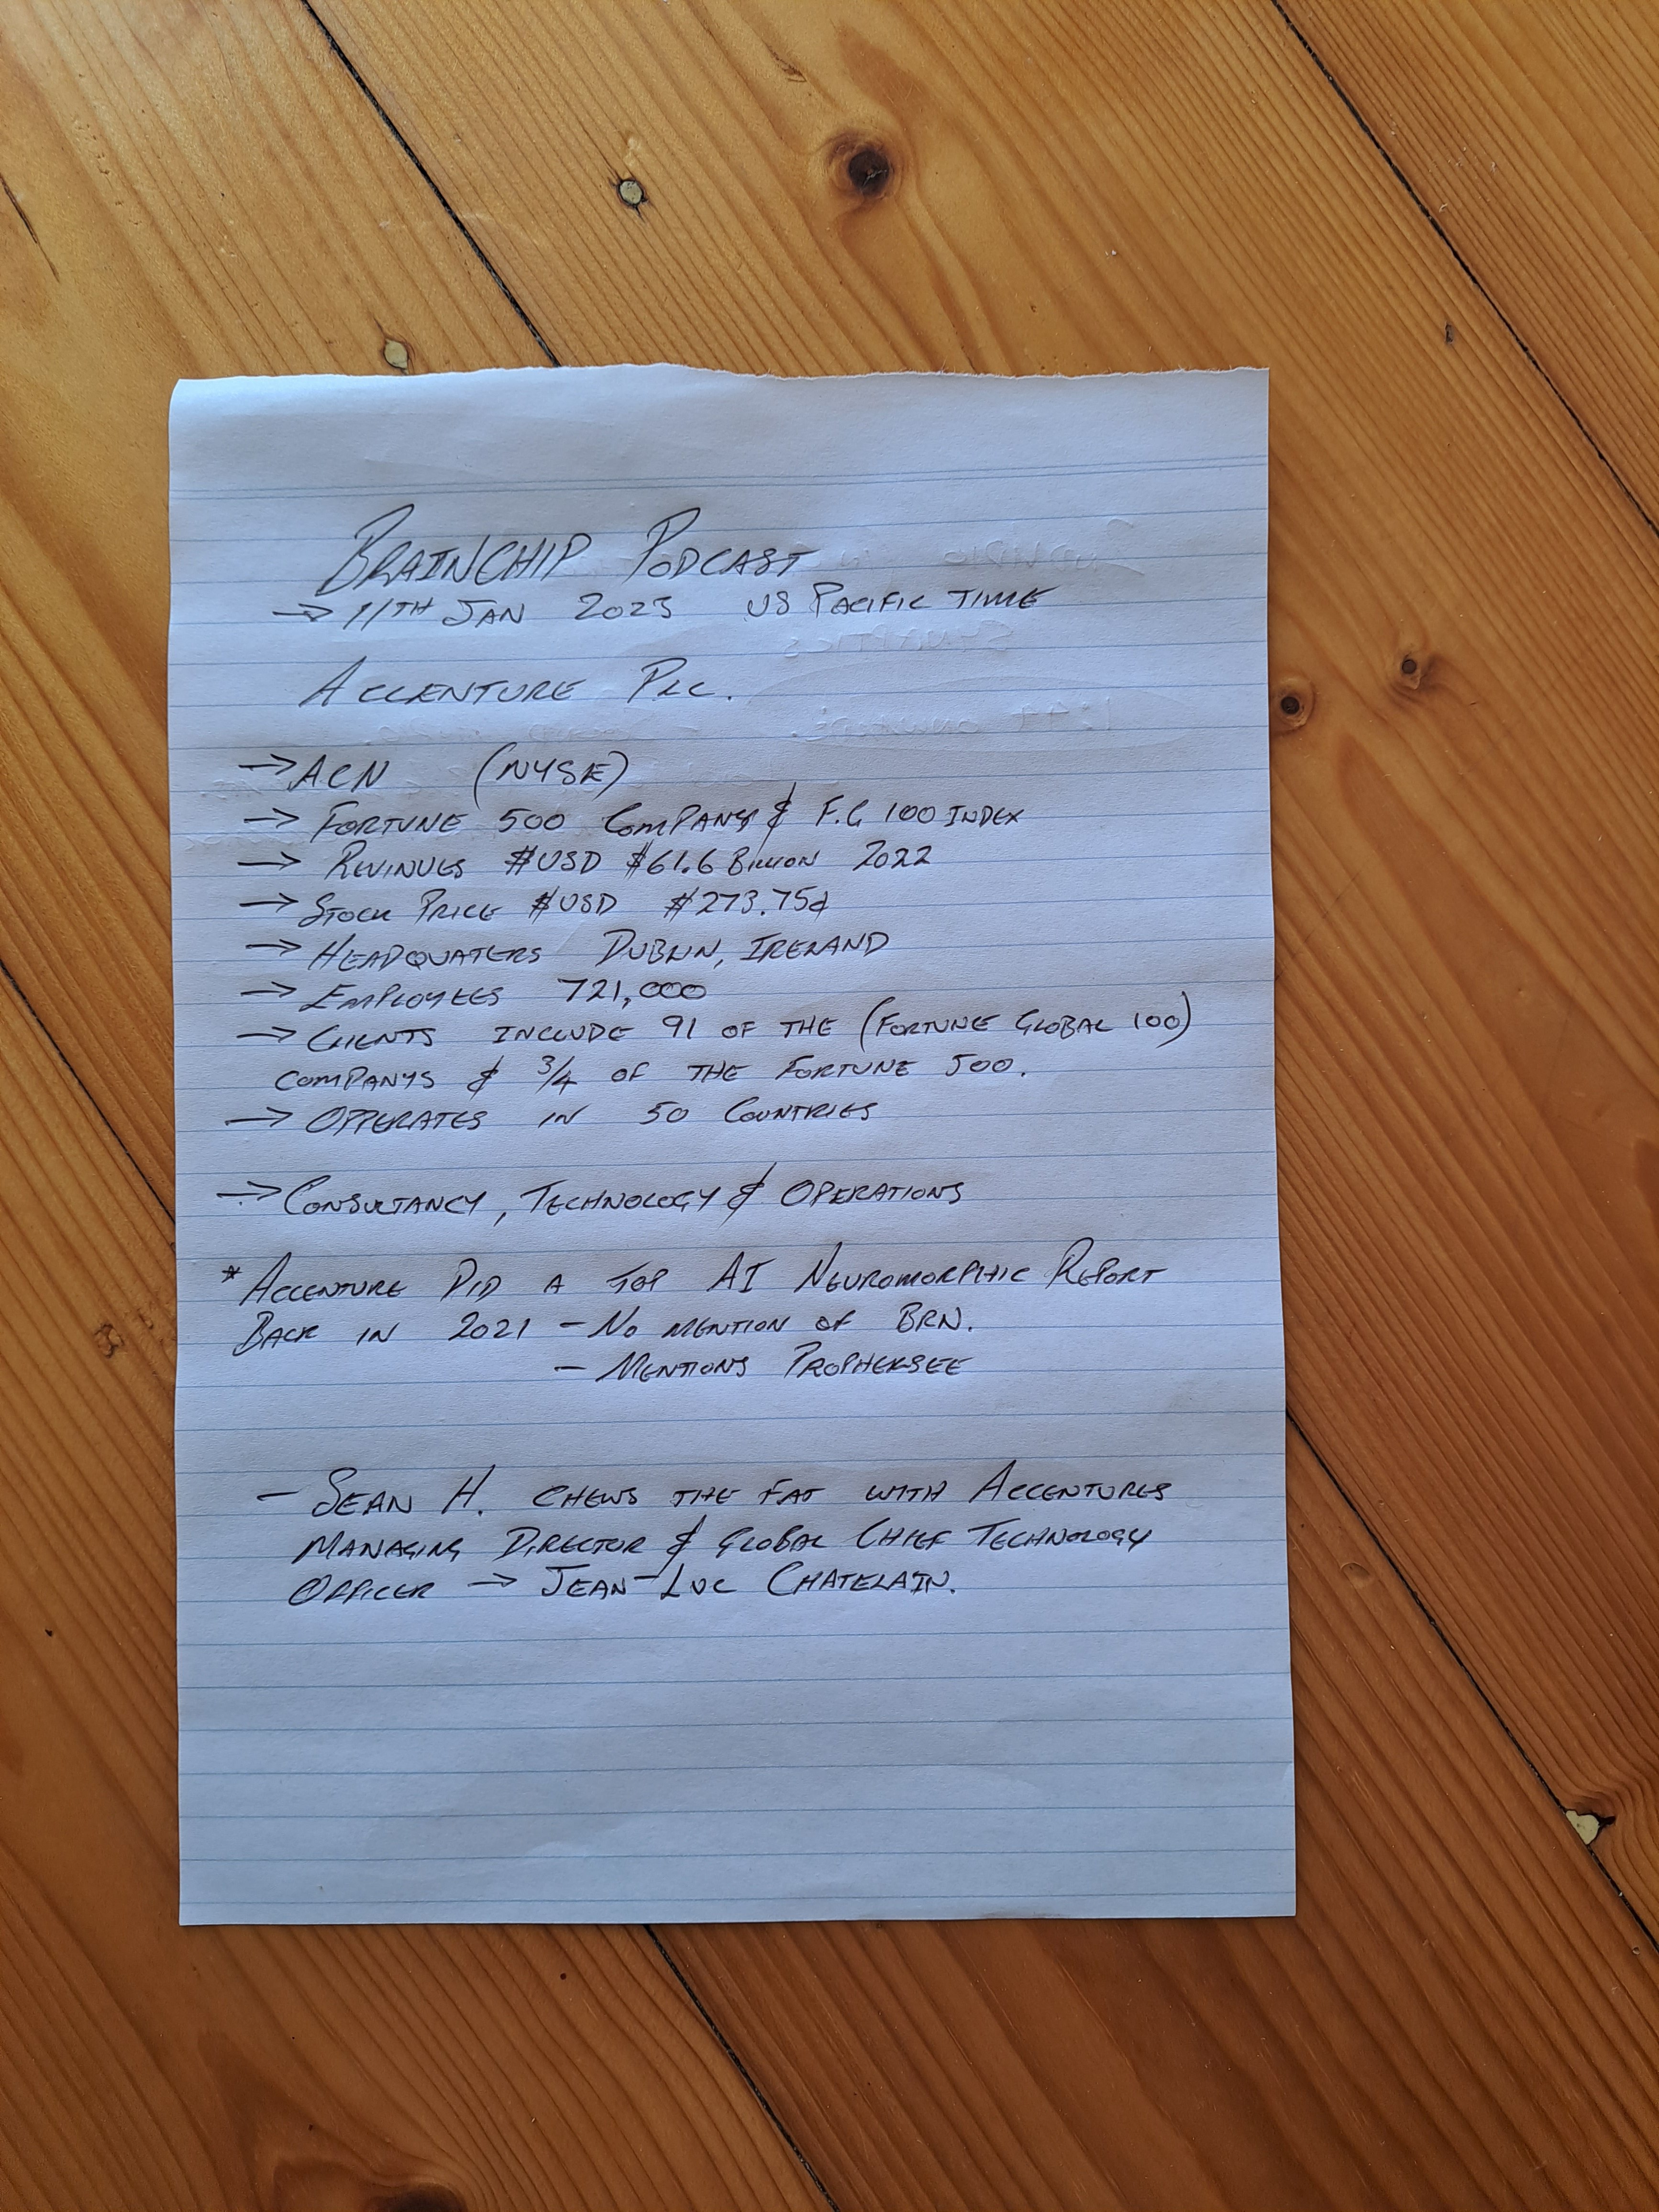 BRAINCHIP PODCAST
→ 11TH JAN 2023 US PACIFIC TIME
ACCENTURE PLC.
→ ACN (NYSE)
→ FORTUNE 500 COMPANY & F.G 100 INDEX
→ REVINUES $USD $61.6 BILLION 2022
→ STOCK PRICE $USD $273.75
→ HEADQUATERS DUBLIN, IRELAND
→ EMPLOYEES 721,000
→ CLIENTS INCLUDE 91 OF THE (FORTUNE GLOBAL 100)
COMPANYS & 3/4 OF THE FORTUNE 500.
→ OPPERATES IN 50 COUNTRIES
→ CONSULTANCY, TECHNOLOGY & OPERATIONS
* ACCENTURE DID A TOP AI NEUROMORPHIC REPORT
BACK IN 2021 – NO MENTION OF BRN.
– MENTIONS PROPHERSEE
– SEAN H. CHEWS THE FAT WITH ACCENTURES
MANAGING DIRECTOR & GLOBAL CHIEF TECHNOLOGY
OFFICER → JEAN-LUC CHATELAIN.
SYNAPTICS